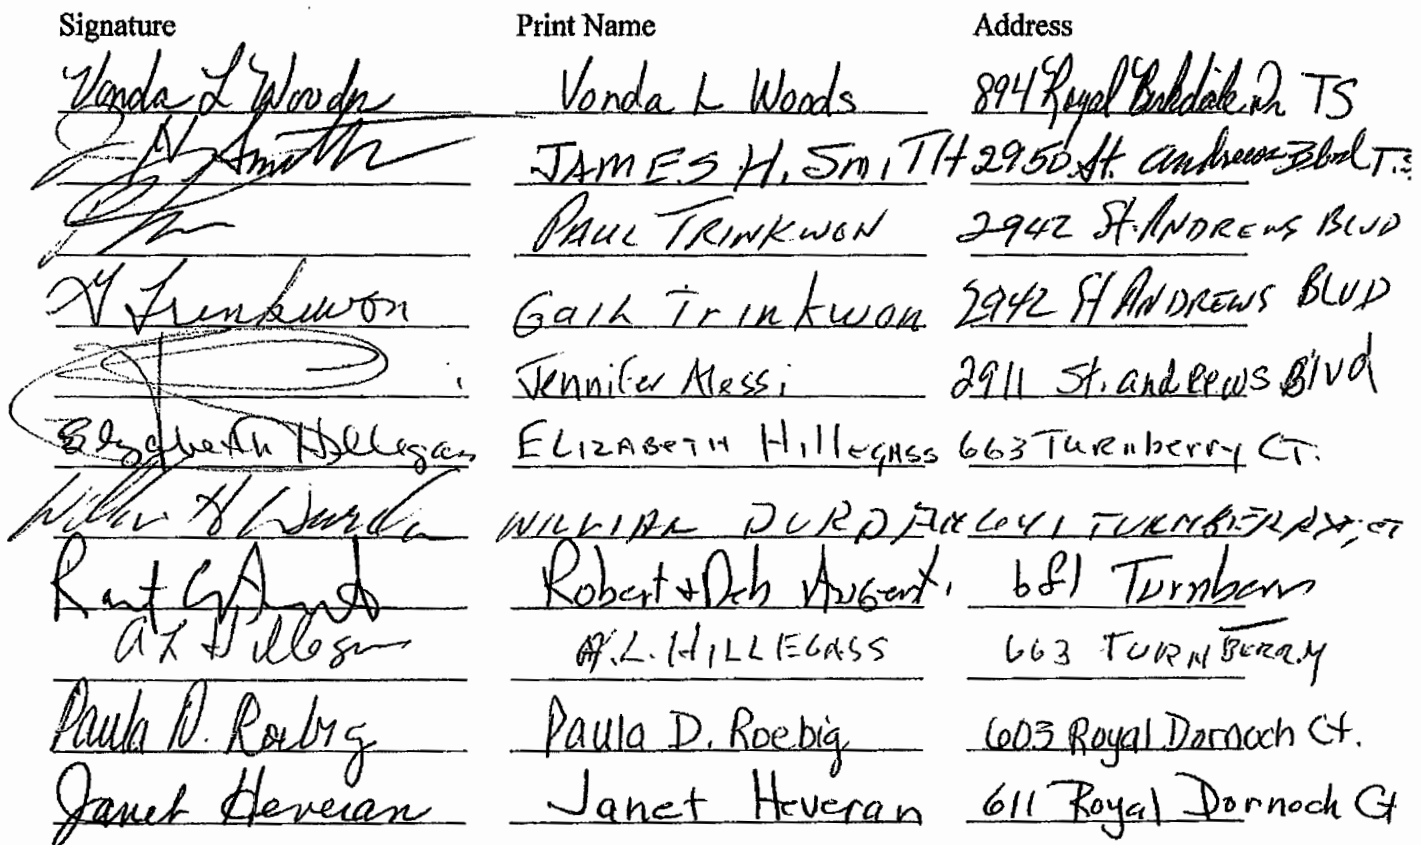 Signature Print Name Address
Vonda L Woods Vonda L Woods 894 Royal Birkdale Dr TS
J H Smith JAMES H. SMITH 2950 St. Andrews Blvd T.S
PAUL TRINKWON 2942 St. ANDREWS BLVD
G Trinkwon Gail Trinkwon 2942 St ANDREWS BLVD
Jennifer Alessi 2911 St. andrews Blvd
Elizabeth Hillegass ELIZABETH HillEGASS 663 Turnberry CT.
William H Durdan WILLIAM DURDAN 641 TURNBERRY CT
Robert + Deb 681 Turnberry
A L Hillegass A.L. HILLEGASS 663 TURNBERRY
Paula D. Roebig Paula D. Roebig 603 Royal Dornoch Ct.
Janet Heveran Janet Heveran 611 Royal Dornoch Ct